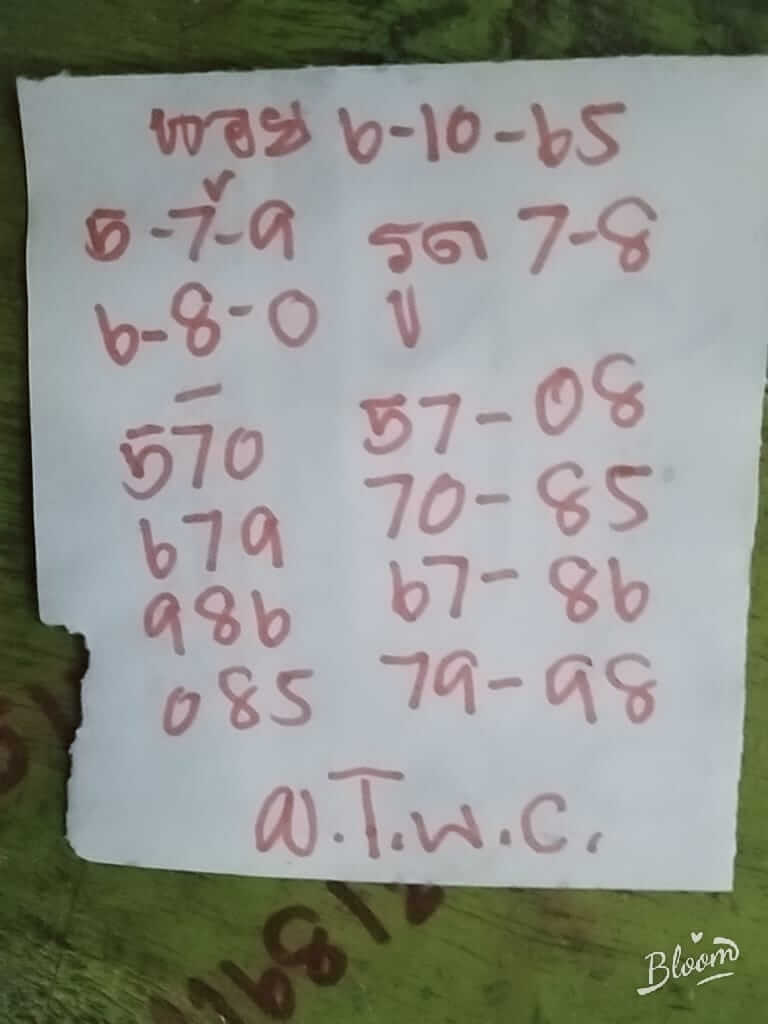 ฮานอย 6-10-65
5-7-9 รูด 7-8
6-8-0
570 57-08
679 70-85
986 67-86
085 79-98
Bloom